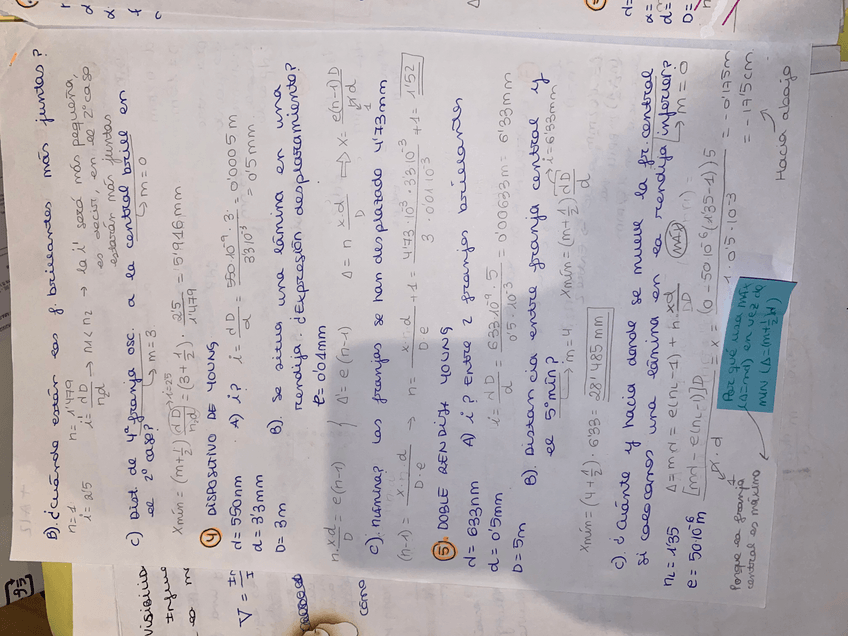 B). ¿Cuándo están las f. brillantes más juntas?
n=1 n=1'479
i=2'5 i'= λD/n₂d → n₁<n₂ → la i' será más pequeña,
es decir, en el 2º caso
estarán más juntas
C) Dist. de 4ª franja osc. a la central brill. en
el 2º caso? → m=3 → m=0
Xmín = (m+1/2) (λD)/(n₂d) = (3+1/2) · 25/1'479 = 5'916mm
i=2'5
4) DISPOSITIVO DE YOUNG
λ=550nm A) i? i= λD/d = 550·10⁻⁹·3/3'3·10⁻³ = 0'0005m
d=3'3mm = 0'5mm
D=3m
B). Se situa una lámina en una
rendija. ¿Expresión desplazamiento?
e=0'01mm
n xd/D = e(n-1) } Δ'=e(n-1) Δ=n x·d/D ⇒ x= e(n-1)D/n·d
1
C). nlámina? Las franjas se han desplazado 4'73mm
(n-1)= x·n·d/D·e → n= x·n·d/D·e +1= 4'73·10⁻³·3'3·10⁻³/3·0'01·10⁻³ +1= 1'52
5). DOBLE RENDIJA YOUNG
λ=633nm A) i? Entre 2 franjas brillantes
d=0'5mm i= λD/d = 633·10⁻⁹·5/0'5·10⁻³ = 0'00633m= 6'33mm
D=5m
B). Distancia entre franja central y
el 5º mín? → i=6'33mm
→ m=4 Xmín=(m+1/2) λD/d
Xmín=(4+1/2)·6'33= 28'485mm
C). ¿Cuánto y hacia donde se mueve la fr. central
si colocamos una lámina en la rendija inferior?
→ m=0
nL=1'35 Δ=mλ=e(nL-1)+n·xd/D (MÁX)
e=50·10⁻⁶m [mλ-e(nL-1)]D/n·d = x= (0-50·10⁻⁶(1'35-1))5/1·0'5·10⁻³ = -0'175m
1
= -17'5cm
Hacia abajo
Por qué usa MÁX
(Δ=mλ) en vez de
MIN (Δ=(m+1/2)λ)
Porque la franja
central es máximo
VISIBILID
V=
como